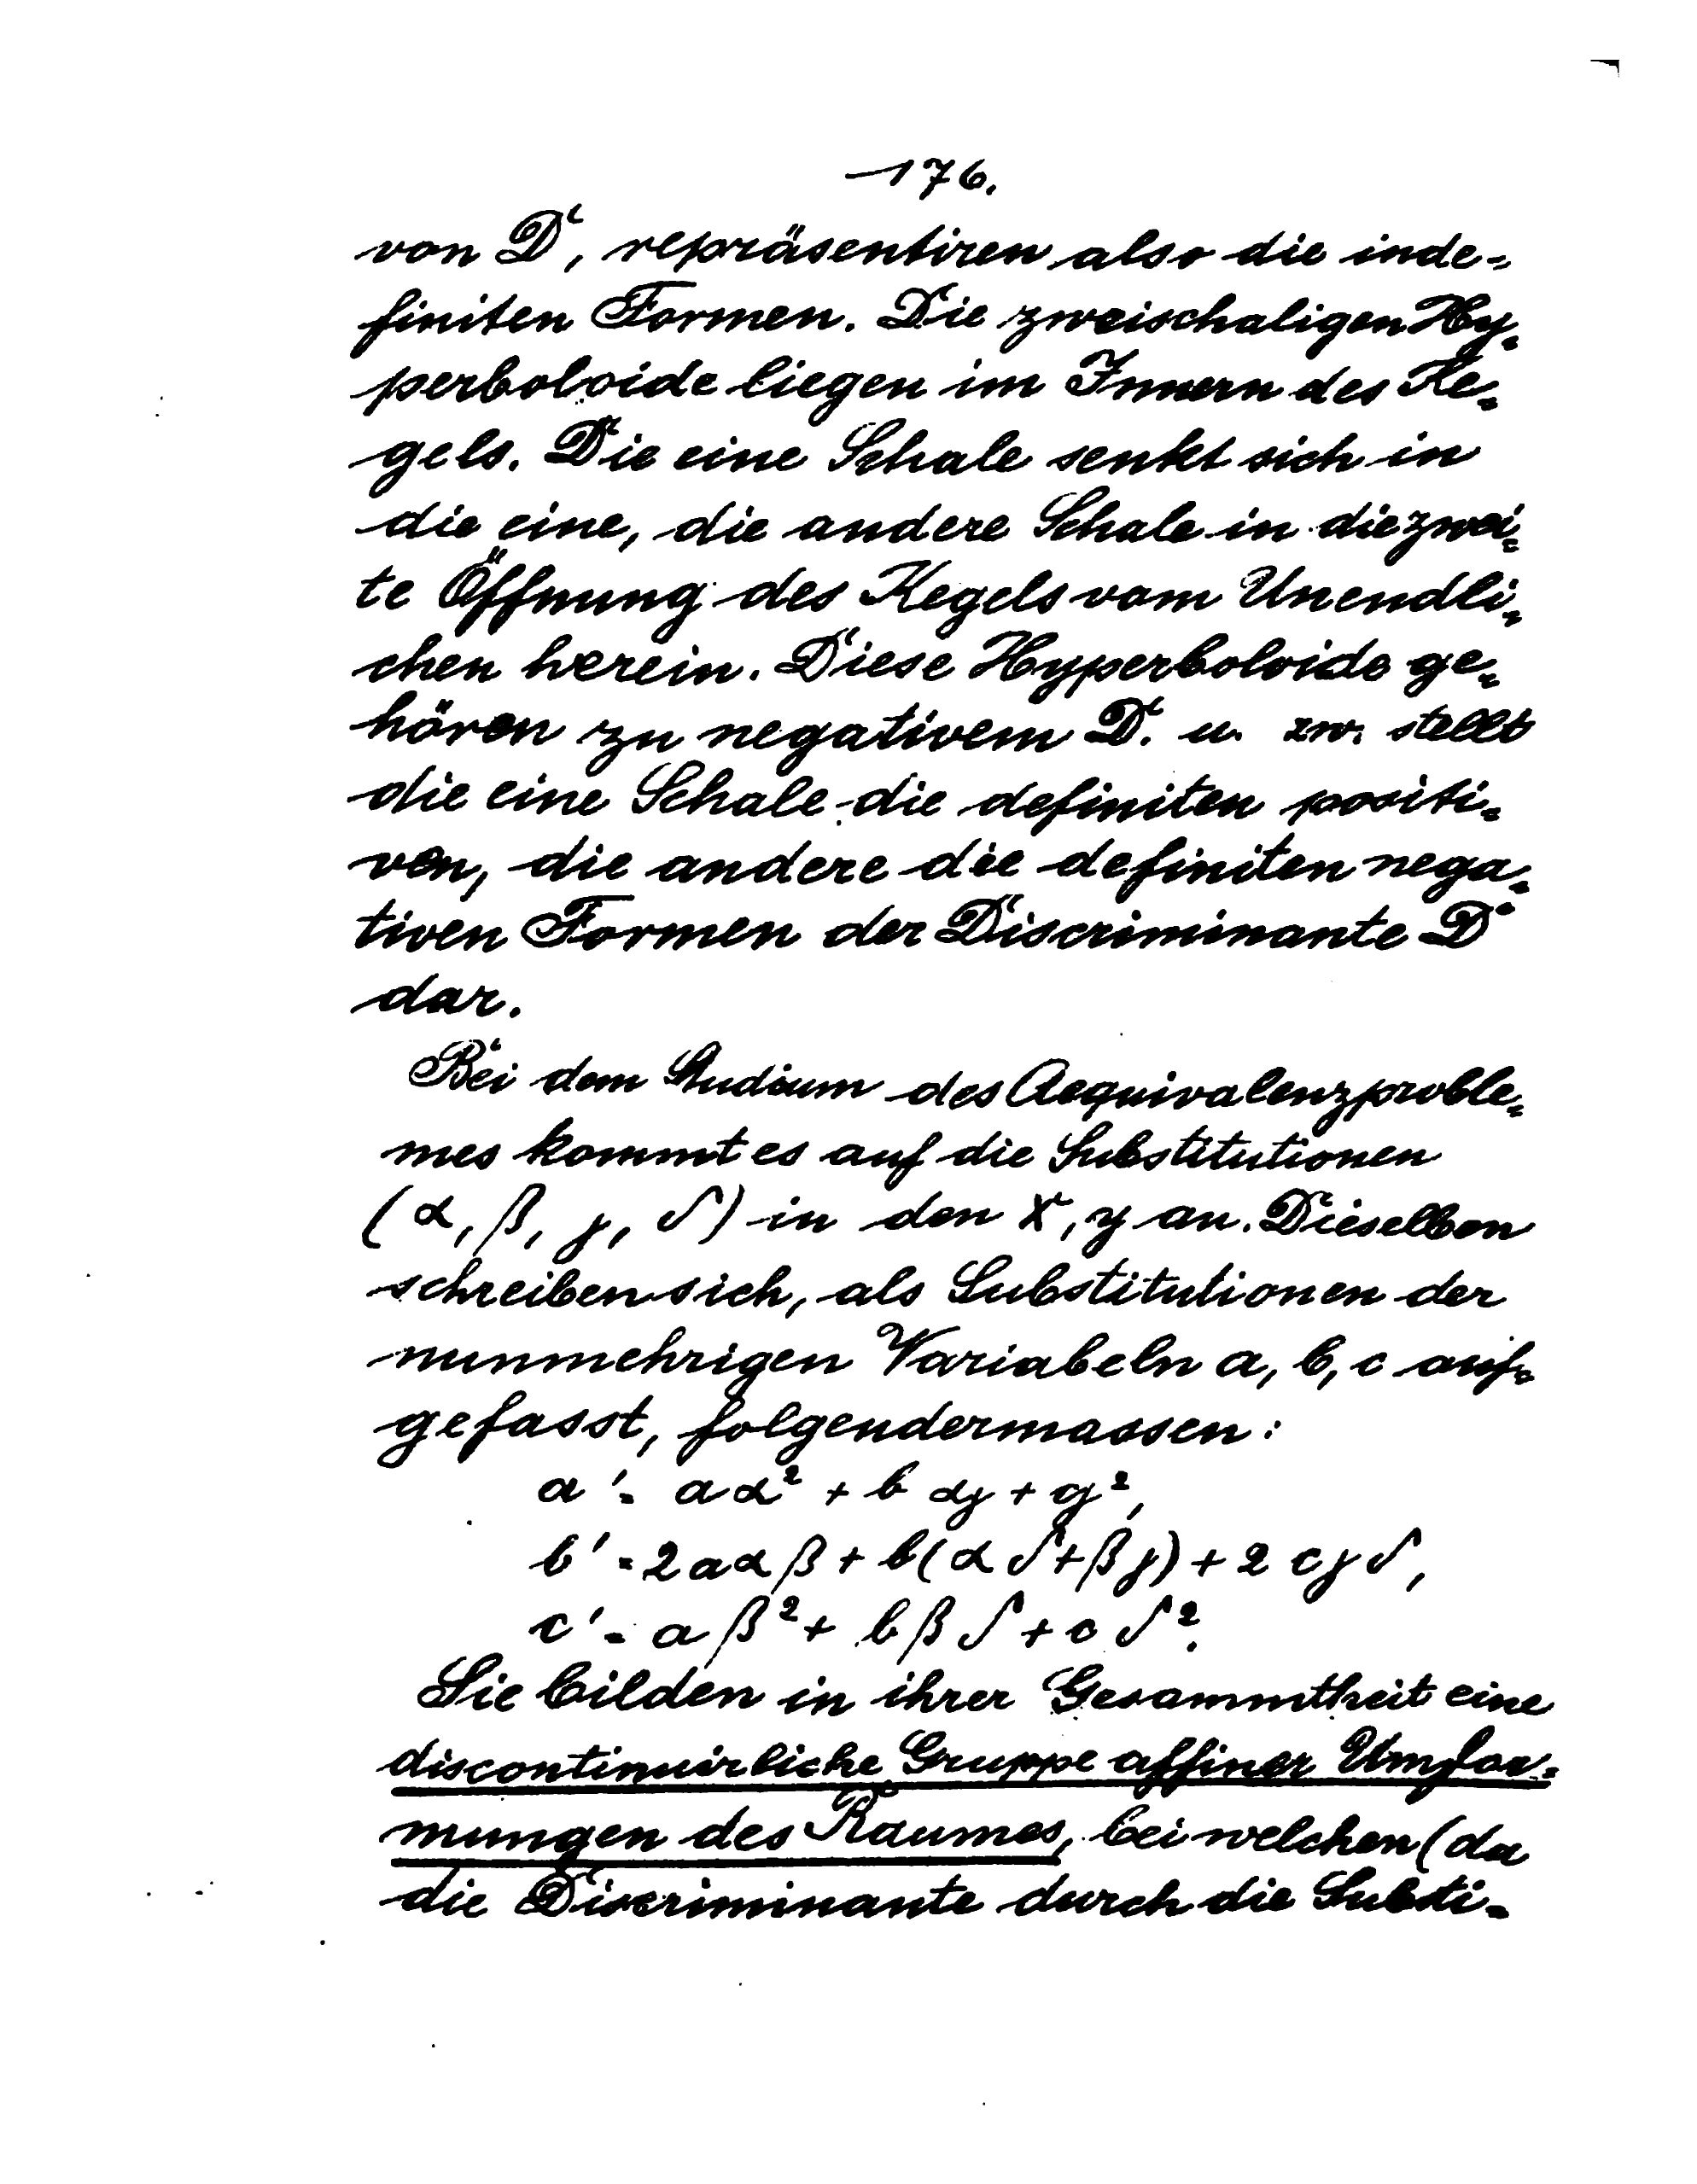 176.
von D, repräsentiren also die inde-
finiten Formen. Die zweischaligen Hy-
perboloide liegen im Innern des Ke-
gels. Die eine Schale senkt sich in
die eine, die andere Schale in die zwei-
te Öffnung des Kegels vom Unendli-
chen herein. Diese Hyperboloide ge-
hören zu negativem D. u. zw. stellt
die eine Schale die definiten positi-
ven, die andere die definiten nega-
tiven Formen der Discriminante D
dar.
Bei dem Studium des Aequivalenzproble-
mes kommt es auf die Substitutionen
(α, β, γ, δ) in den x, y an. Dieselben
schreiben sich, als Substitutionen der
nunmehrigen Variabeln a, b, c auf-
gefasst, folgendermassen:
a' = aα² + bαγ + cγ²,
b' = 2aαβ + b(αδ + βγ) + 2cγδ,
c' = aβ² + bβδ + cδ².
Sie bilden in ihrer Gesammtheit eine
discontinuirliche Gruppe affiner Umfor-
mungen des Raumes, bei welchen (da
die Discriminante durch die Substi-